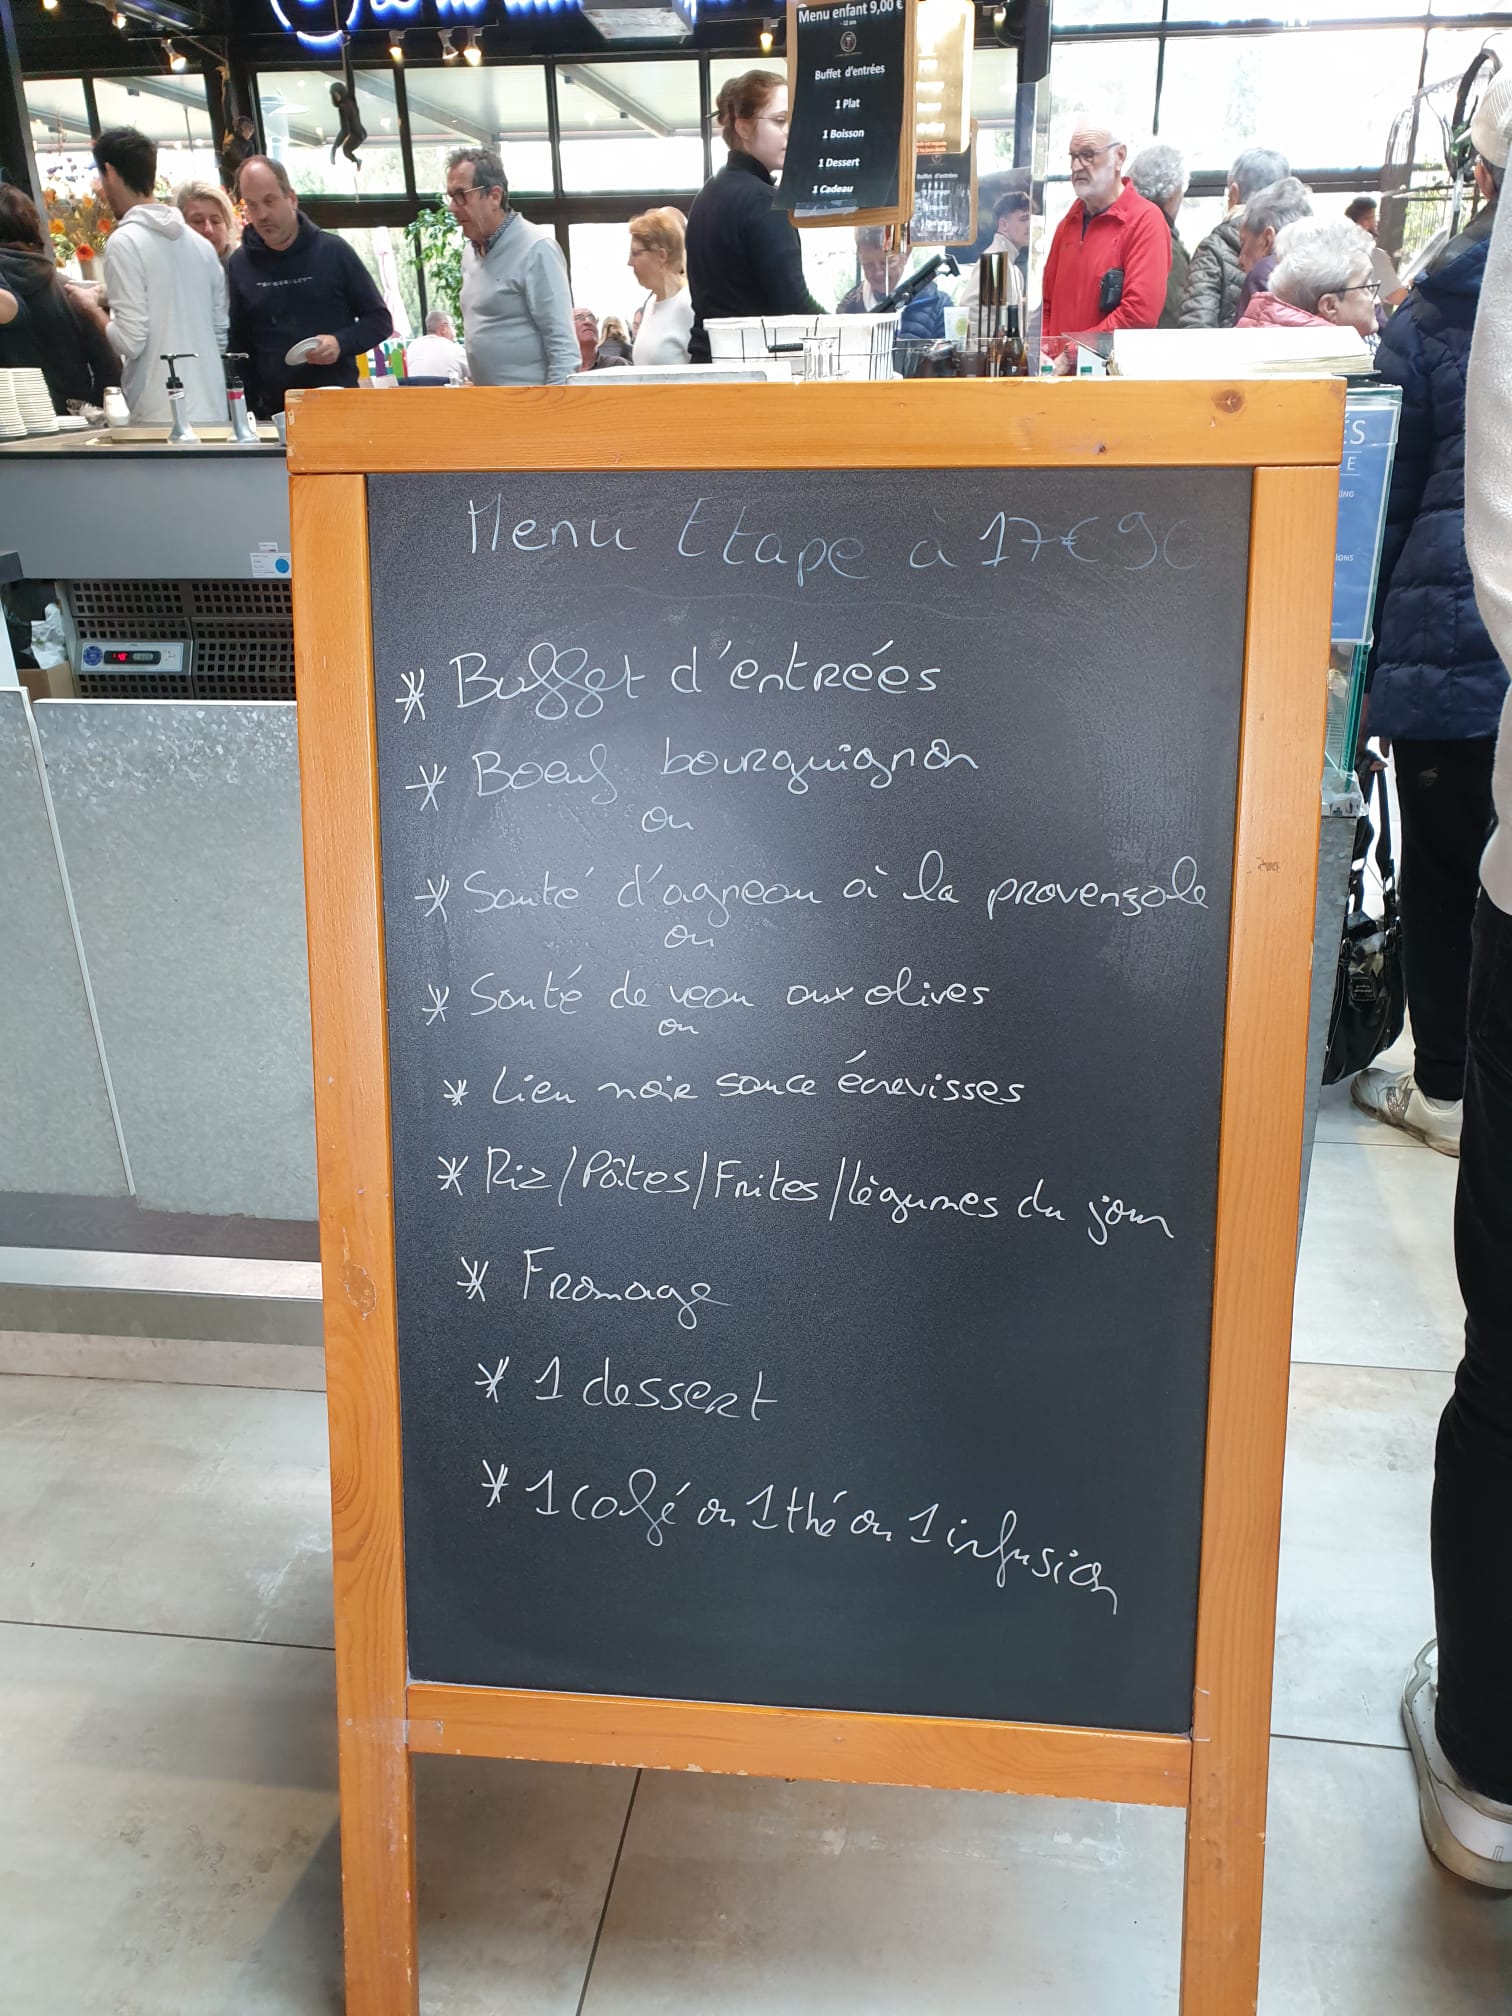 Menu enfant 9,00 €
- 12 ans
Buffet d'entrées
1 Plat
1 Boisson
1 Dessert
1 Cadeau
Buffet d'entrées
ÉS
E
Menu Etape à 17€90
* Buffet d'entrées
* Boeuf bourguignon
ou
* Sauté d'agneau à la provençale
ou
* Sauté de veau aux olives
ou
* Lieu noir sauce écrevisses
* Riz/Pâtes/Frites/légumes du jour
* Fromage
* 1 dessert
* 1 café ou 1 thé ou 1 infusion